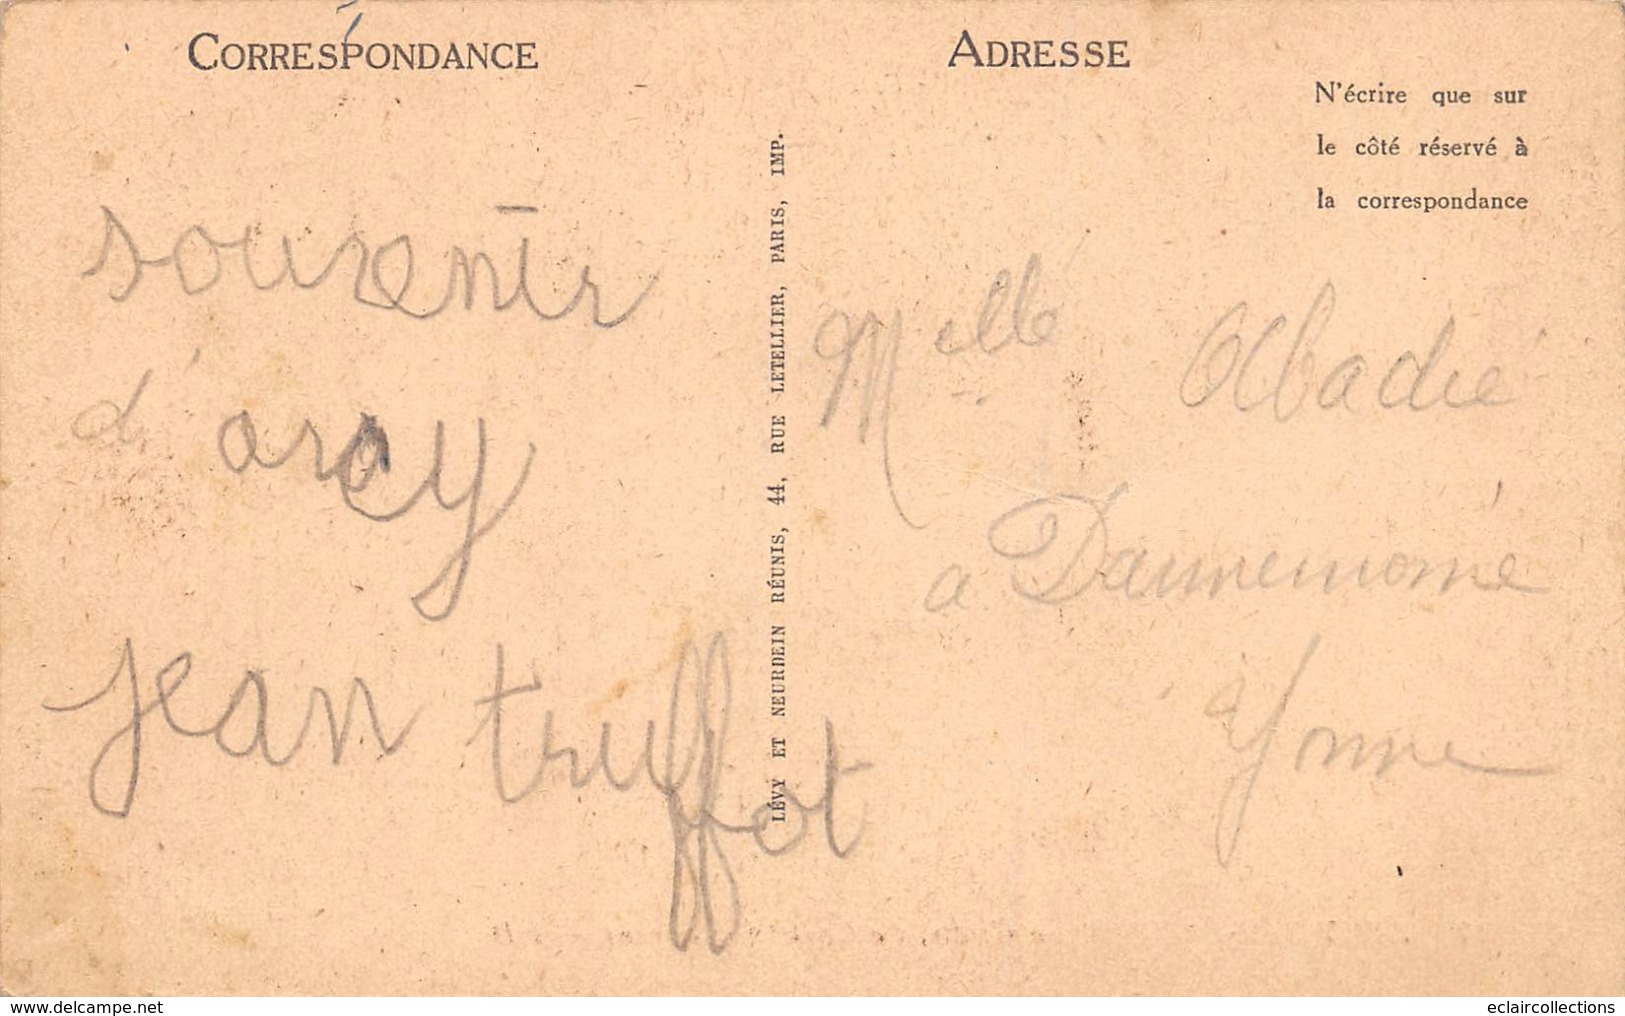 CORRESPONDANCE
souvenir
d'arcy
jean truffot
LÉVY ET NEURDEIN RÉUNIS, 44, RUE LETELLIER, PARIS, IMP.
ADRESSE
N'écrire que sur
le côté réservé à
la correspondance
Melle Abadie
a Dannemoine
Yonne
www.delcampe.net
eclaircollections